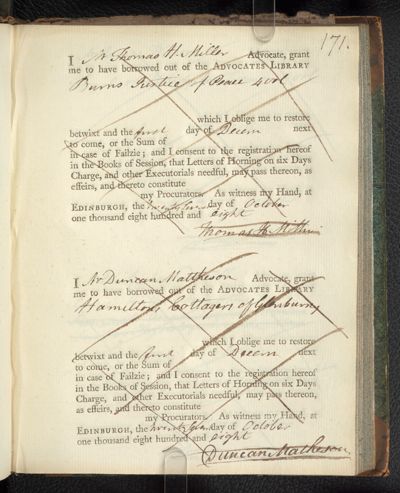 171.
I Mr Thomas H. Miller Advocate, grant
me to have borrowed out of the ADVOCATES LIBRARY
Burns Justice of Peace 4 vol
which I oblige me to restore
betwixt and the first day of Decem next
to come, or the Sum of
in case of Failzie; and I consent to the registration hereof
in the Books of Session, that Letters of Horning on six Days
Charge, and other Executorials needful, may pass thereon, as
effeirs, and thereto constitute
my Procurators. As witness my Hand, at
EDINBURGH, the day of October
one thousand eight hundred and eight
Thomas H. Miller
I Mr Duncan Mattheson Advocate, grant
me to have borrowed out of the ADVOCATES LIBRARY
Hamiltons Cottagers of Glenburny
which I oblige me to restore
betwixt and the first day of Decem next
to come, or the Sum of
in case of Failzie; and I consent to the registration hereof
in the Books of Session, that Letters of Horning on six Days
Charge, and other Executorials needful, may pass thereon,
as effeirs, and thereto constitute
my Procurators. As witness my Hand, at
EDINBURGH, the day of October
one thousand eight hundred and eight
Duncan Matheson